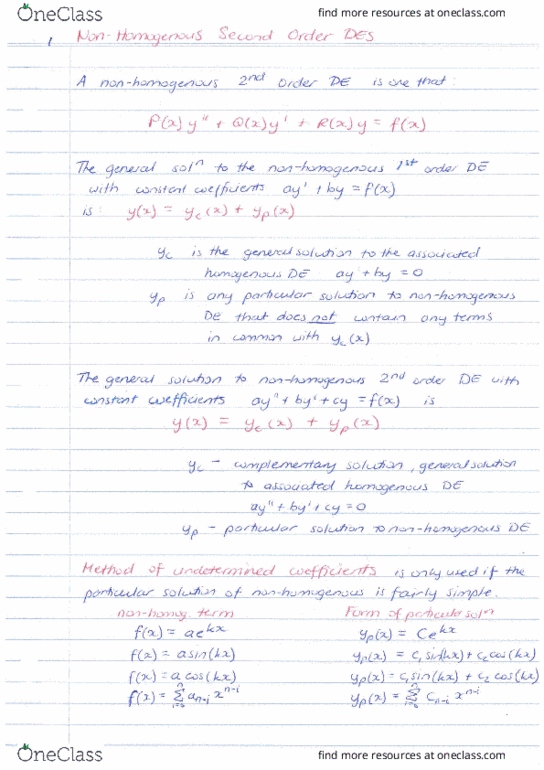 OneClass find more resources at oneclass.com
1 Non-Homogenous Second Order DEs
A non-homogenous 2nd order DE is one that:
P(x)y'' + Q(x)y' + R(x)y = f(x)
The general solⁿ to the non-homogenous 1st order DE
with constant coefficients ay' + by = f(x)
is: y(x) = yc(x) + yp(x)
yc is the general solution to the associated
homogenous DE ay' + by = 0
yp is any particular solution to non-homogenous
DE that does not contain any terms
in common with yc(x)
The general solution to non-homogenous 2nd order DE with
constant coefficients ay'' + by' + cy = f(x) is
y(x) = yc(x) + yp(x)
yc – complementary solution, general solution
to associated homogenous DE
ay'' + by' + cy = 0
yp – particular solution to non-homogenous DE
Method of undetermined coefficients is only used if the
particular solution of non-homogenous is fairly simple.
non-homog. term Form of particular solⁿ
f(x) = ae^kx yp(x) = Ce^kx
f(x) = a sin(kx) yp(x) = c₁ sin(kx) + c₂ cos(kx)
f(x) = a cos(kx) yp(x) = c₁ sin(kx) + c₂ cos(kx)
f(x) = Σⁿᵢ₌₀ aₙ₋ᵢ xⁿ⁻ⁱ yp(x) = Σⁿᵢ₌₀ Cₙ₋ᵢ xⁿ⁻ⁱ
OneClass find more resources at oneclass.com